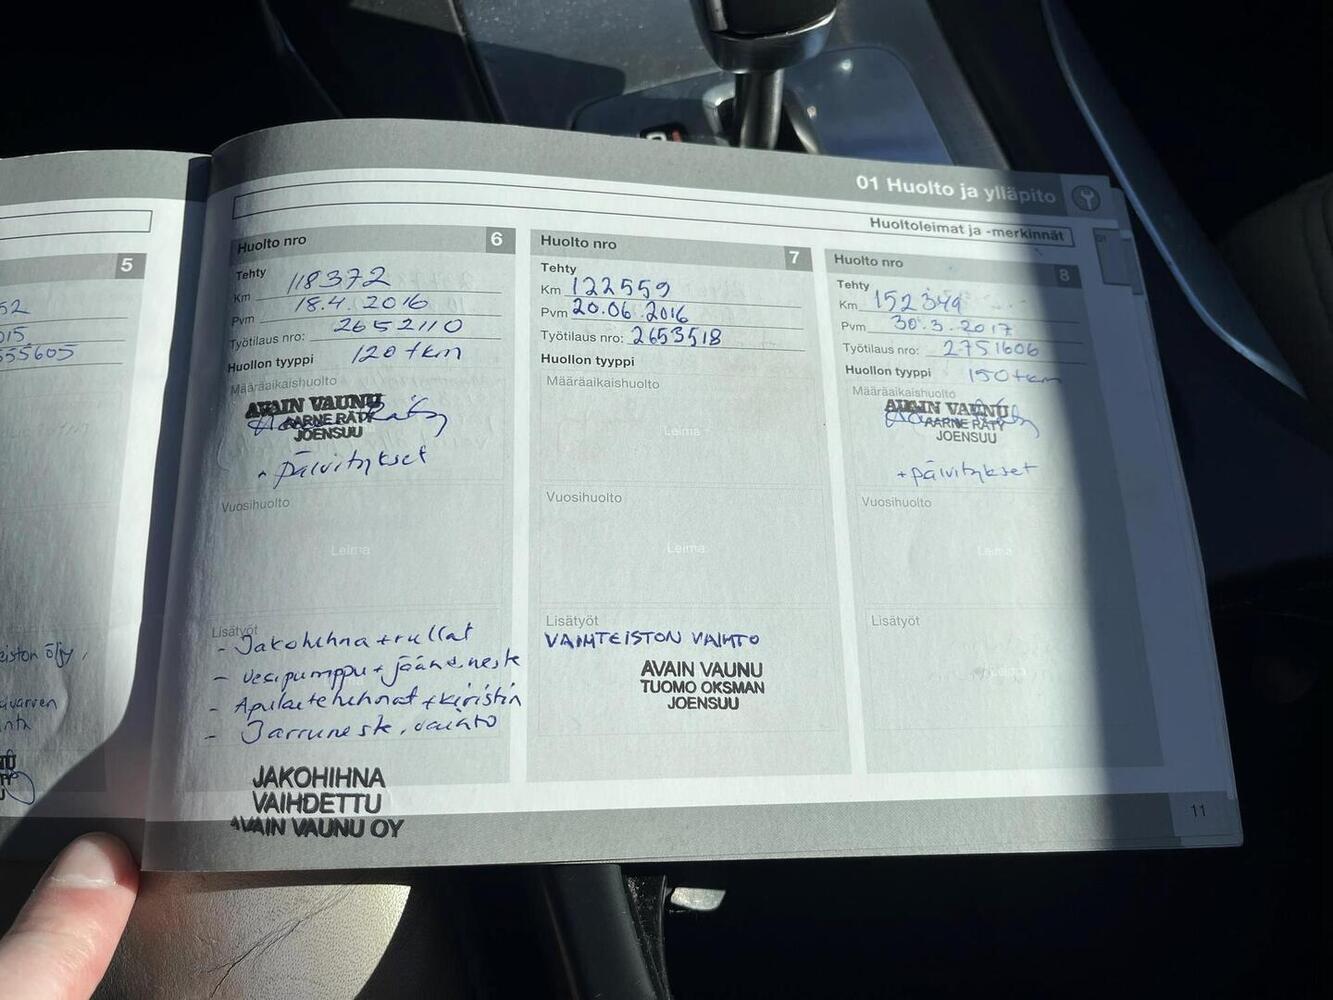 01 Huolto ja ylläpito
Huoltoleimat ja -merkinnät
01
5
52
015
555605
Huolto nro 6
Tehty
Km 118372
Pvm 18.4.2016
Työtilaus nro: 2652110
Huollon tyyppi 120 tkm
Määräaikaishuolto
AVAIN VAUNU
AARNE RÄTY
JOENSUU
+ päivitykset
Vuosihuolto
Leima
Lisätyöt
- Jakohihna + rullat
- Vesipumppu + jäähd.neste
- Apulaitehihnat + kiristin
- Jarruneste.vaihto
JAKOHIHNA
VAIHDETTU
AVAIN VAUNU OY
Huolto nro 7
Tehty
Km 122559
Pvm 20.06.2016
Työtilaus nro: 2653518
Huollon tyyppi
Määräaikaishuolto
Leima
Vuosihuolto
Leima
Lisätyöt
VAIHTEISTON VAIHTO
AVAIN VAUNU
TUOMO OKSMAN
JOENSUU
Huolto nro 8
Tehty
Km 152349
Pvm 30.3.2017
Työtilaus nro: 2751606
Huollon tyyppi 150 tkm
Määräaikaishuolto
AVAIN VAUNU
AARNE RÄTY
JOENSUU
+ päivitykset
Vuosihuolto
Leima
Lisätyöt
Leima
11